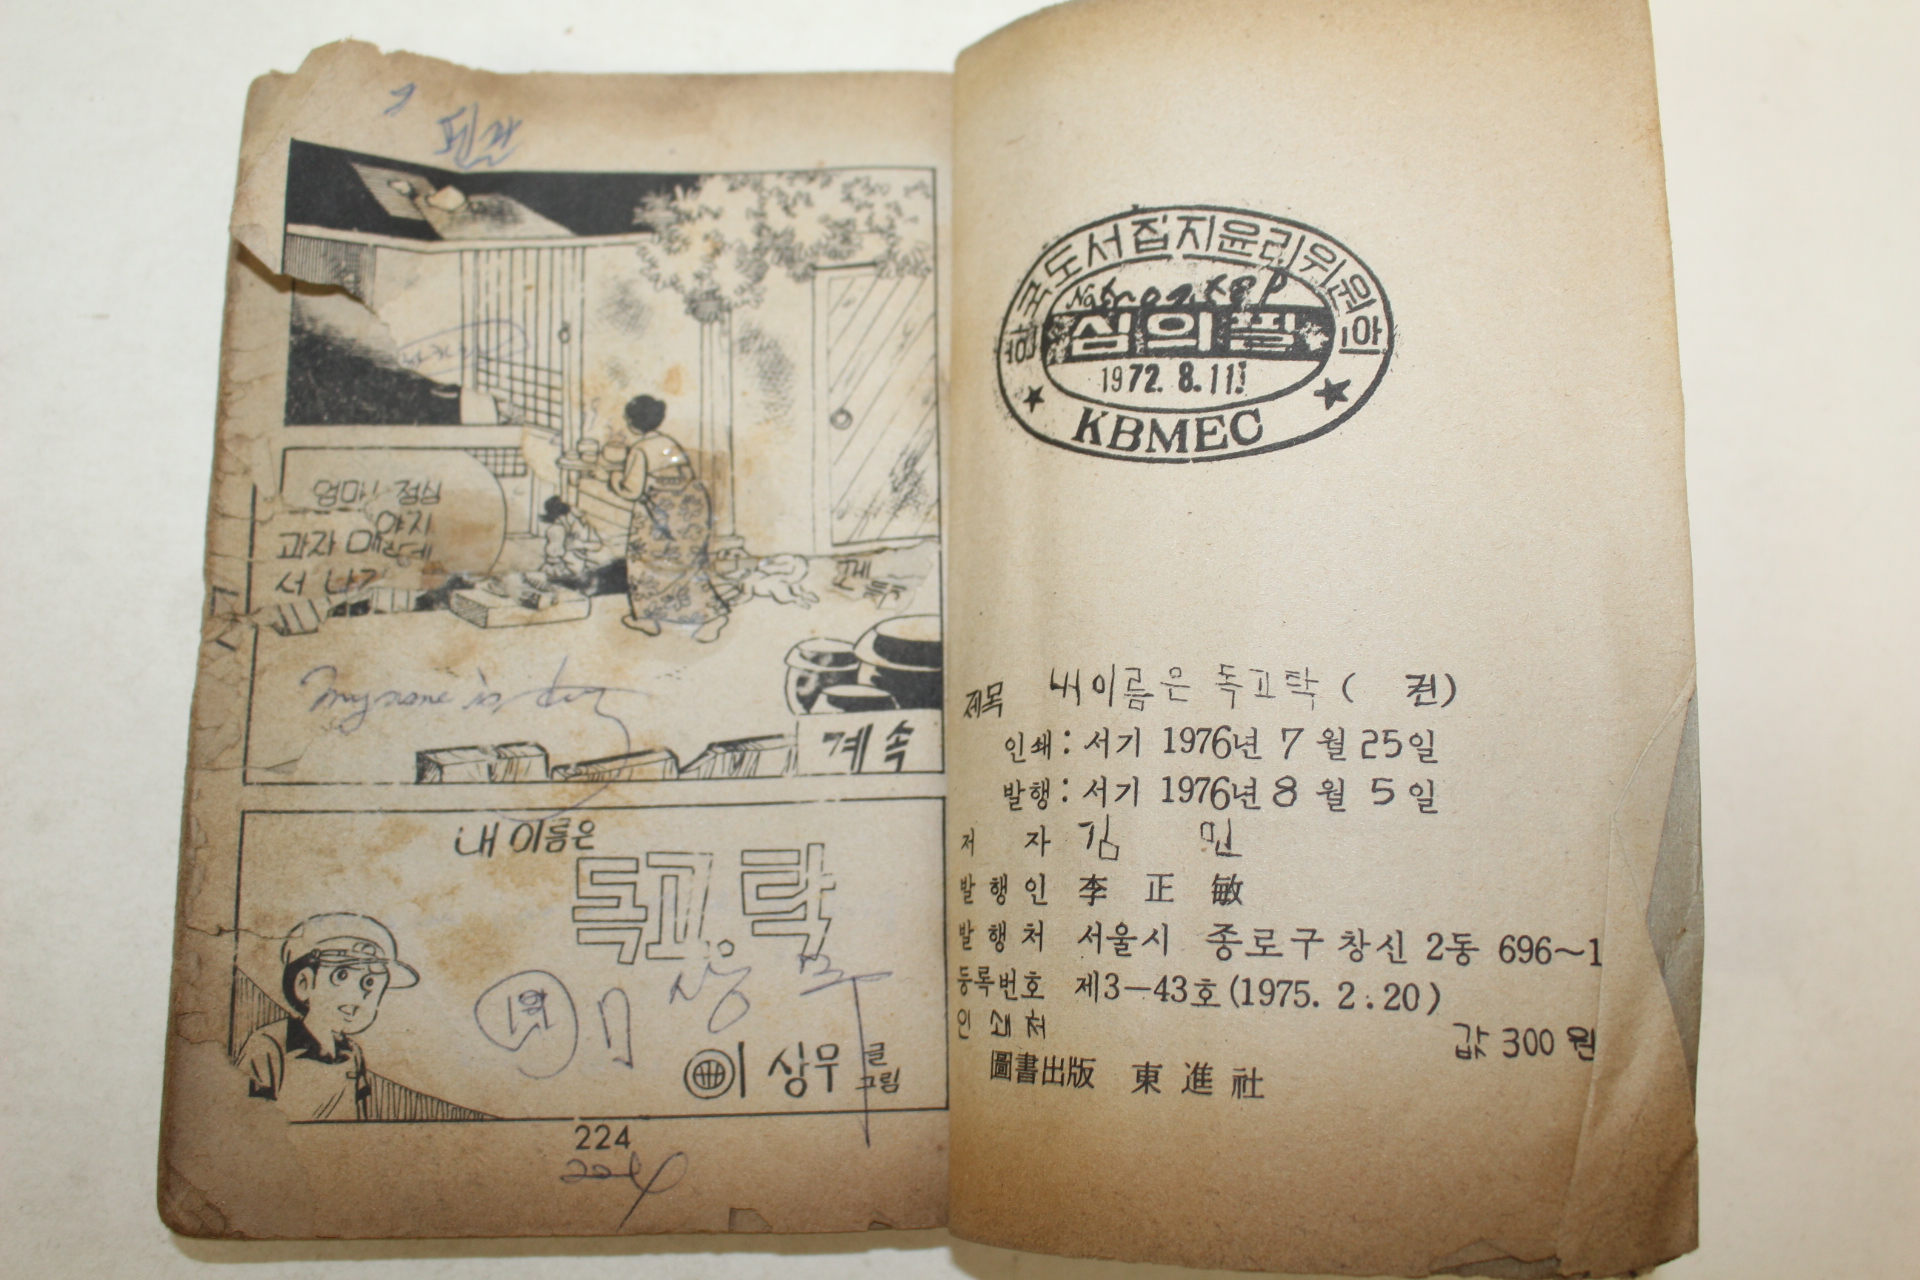 엄마! 점심
과자 먹
서 나가
계속
내 이름은
독고탁
이상무 글
그림
224
224
한국도서잡지윤리위원회
심의필
1972. 8. 11
KBMEC
제목 내이름은 독고탁 ( 권)
인쇄: 서기 1976년 7월 25일
발행: 서기 1976년 8월 5일
저 자 김 민
발행인 李正敏
발행처 서울시 종로구 창신 2동 696~1
등록번호 제3-43호(1975. 2. 20)
인쇄처
값 300원
圖書出版 東進社